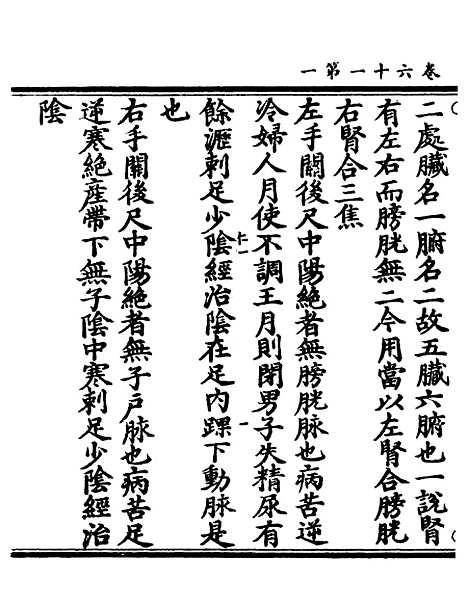 卷六十一第一
二處臟名一腑名二故五臟六腑也一說腎
有左右而膀胱無二今用當以左腎合膀胱
右腎合三焦
左手關後尺中陽絕者無膀胱脉也病苦逆
冷婦人月使不調王月則閉男子失精尿有
餘瀝刺足少陰經治陰在足内踝下動脉是
也
右手關後尺中陽絕者無子戶脉也病苦足
逆寒絕產帶下無子陰中寒刺足少陰經治
陰